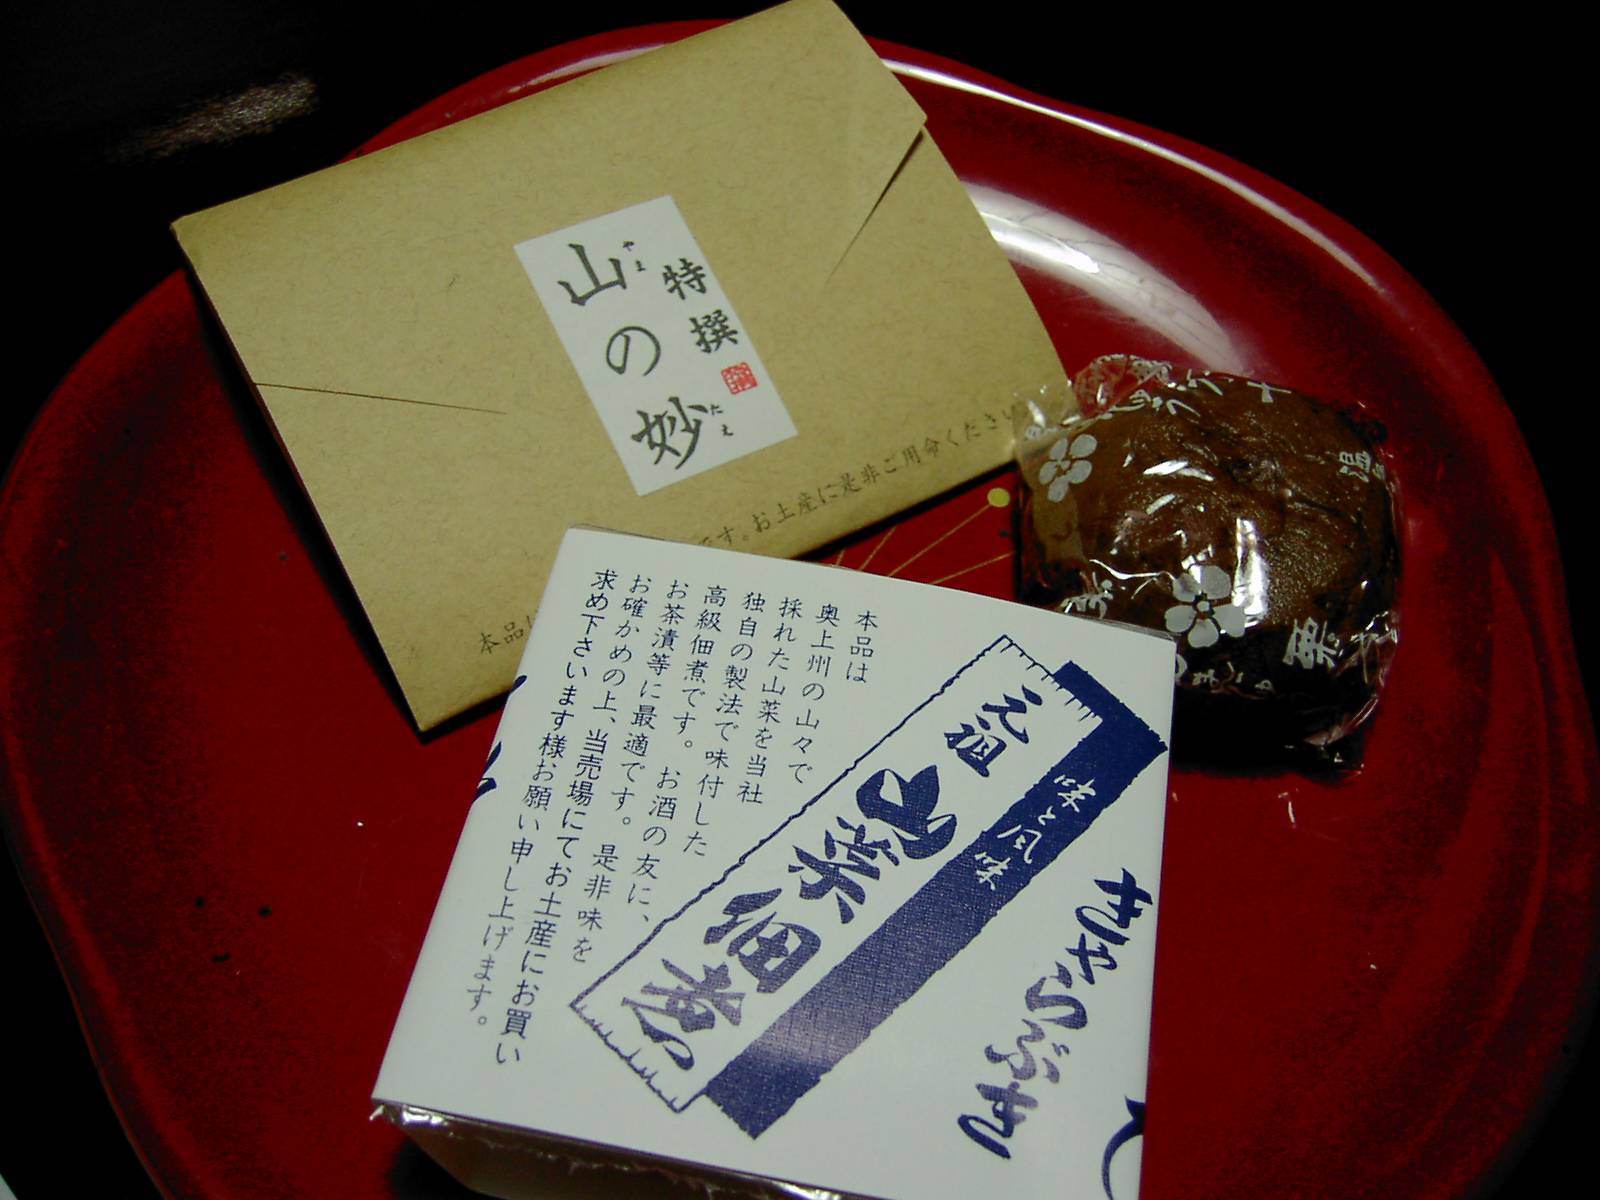 特撰
山の妙
やま
たえ
です。お土産に是非ご用命ください
本品は
本品は
奥上州の山々で
採れた山菜を当社
独自の製法で味付した
高級佃煮です。
お茶漬等に最適です。お酒の友に、
お確かめの上、当売場にてお土産にお買い
求め下さいます様お願い申し上げます。
是非味を
元祖
山菜佃煮
味と風味
きゃらぶき